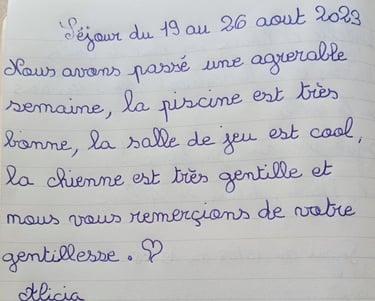 Séjour du 19 au 26 aout 2023
Nous avons passé une agrerable
semaine, la piscine est très
bonne, la salle de jeu est cool,
la chienne est très gentille et
nous vous remerçions de votre
gentillesse. ♡
Alicia